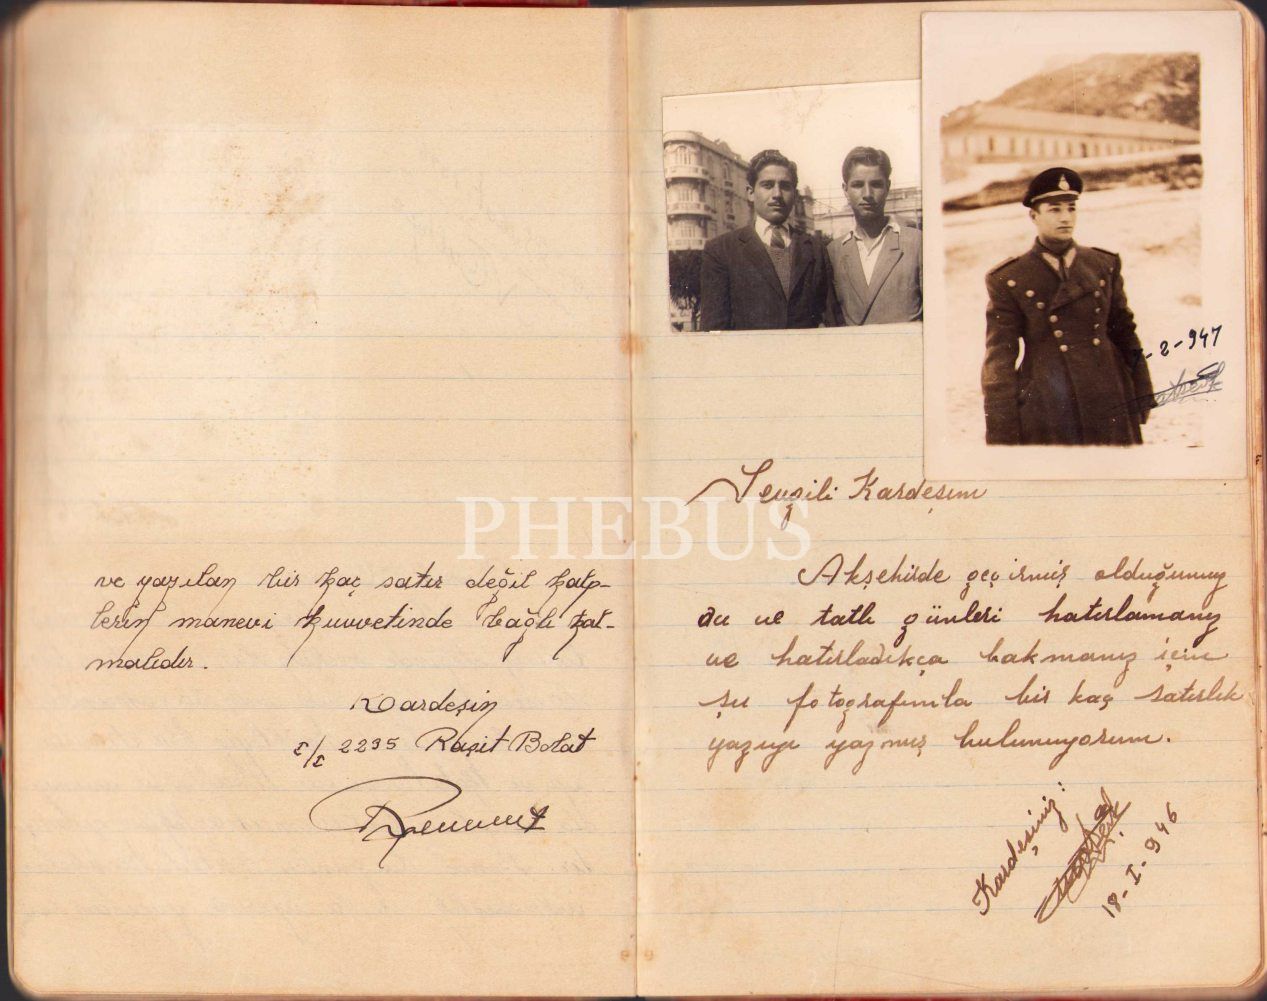 ve yazılan bir kaç satır değil kalp-
lerin manevi kuvvetinde bağlı kal-
malıdır.
Kardeşin
2295 Raşit Bolat
7-2-947
Sevgili Kardeşim
Akşehirde geçirmiş olduğumuz
acı ve tatlı günleri hatırlamanız
ve hatırladıkça bakmanız için
şu fotografımla bir kaç satırlık
yazıyı yazmış bulunuyorum.
Kardeşiniz:
18-I-946
PHEBUS